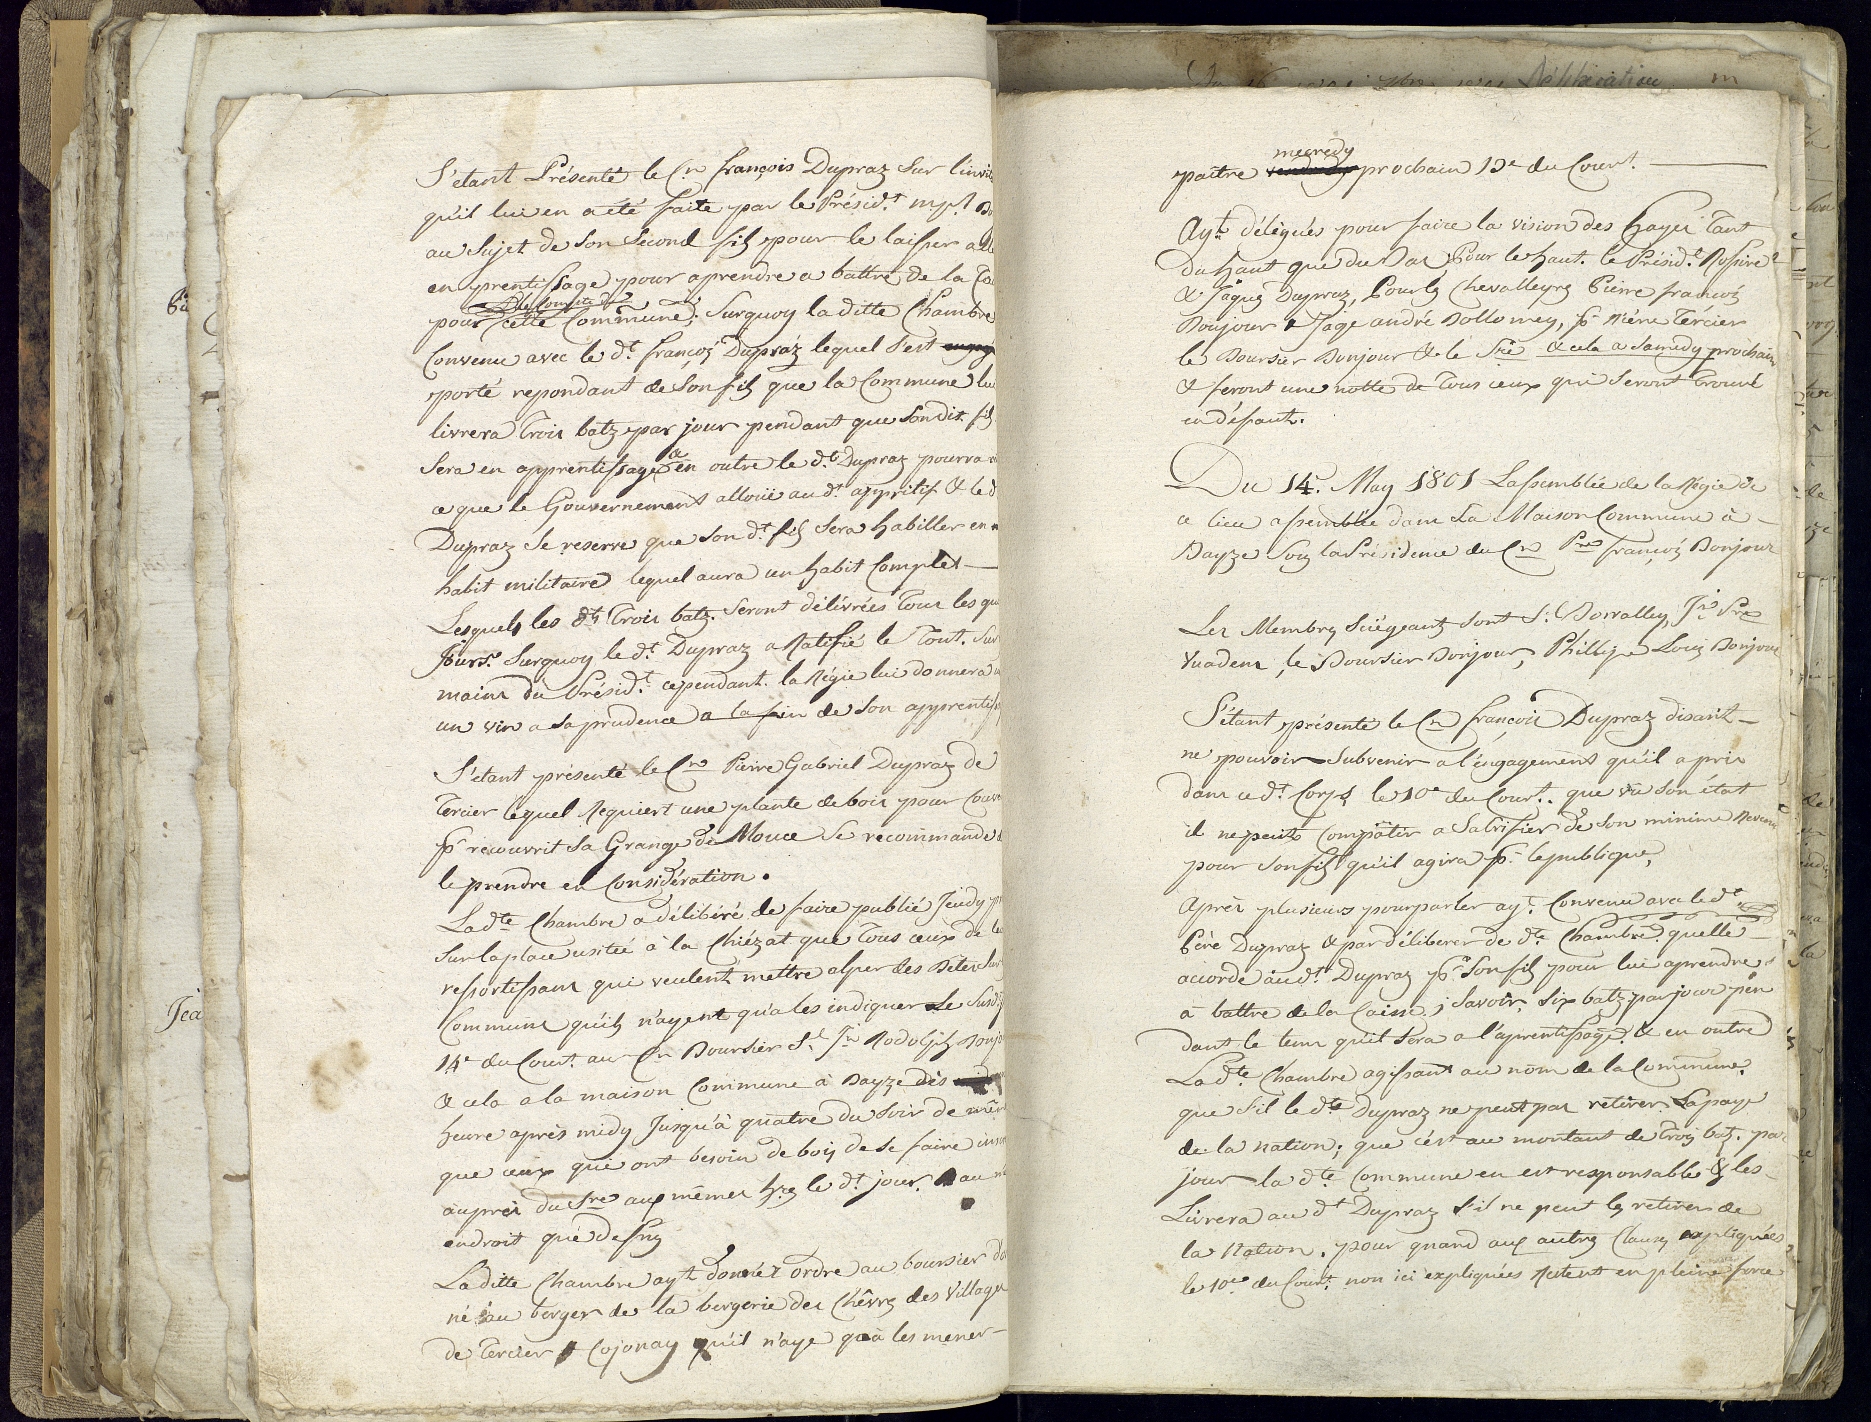 S'etant Présenté le Cn françois Dupraz sur l'invit
qu'il lui en a été faite par le Présidt.
au Sujet de Son Second fils pour le laisser alle
en prentissage pour aprendre a battre de la Ca
pour cette Commune; Surquoy la ditte Chambre
Convenu avec le dt. françoï Dupraz lequel S'est
porté repondant de Son fils que la Commune lui
livrera Trois batz par jour pendant que Son dit fils
Sera en apprentissage & en outre le dt. Dupraz pourra
ce que le Gouvernement allouë au dt. appritif & le d
Dupraz Se reserve que Son dt. fils Sera habiller en
habit militaire lequel aura un habit Complet —
Lesquels les dts Trois batz. Seront délivrées tous les qu
Jours. Surquoy le dt. Dupraz a Ratifié le Tout. Sur
mains du Présidt. cependant la Régie lui donnera
un vin a Sa prudence a la fin de Son apprentiss
S'etant présenté le Cn Pierre Gabriel Dupraz de
Tercier lequel Requiert une plante de bois pour Couv
pr. recouvrit Sa Grange de Mouce Se recommande
le prendre en Considération.
La dte Chambre a délibéré de faire publié Jeudy pr
Sur la place usitée à la Chiézat que Tous ceux de la
ressortissans qui veulent mettre alper des Bêtes Sur
Communs qu'ils n'ayent qu'a les indiquer le Susd
14e du Court. au Cn Boursier St. Jn Rodolph Bonjo
& cela a la maison Commune à Bayze dès
heure après midy Jusqu'à quatre du Soir de mêm
que ceux qui ont besoin de bois de Se faire inscr
auprès du Sre aux mêmes hres le dt. jour. & au m
endroit que dessus
Laditte Chambre ayt. donnér ordre au boursier d'o
né au berger de la bergerie des Chêvres des Villages
de Tercier & Cojonay qu'il n'aye qu'à les mener —
mecredy
paître vendredy prochain 13e du Court. —
Ayt. délégués pour faire la vision des hayes Tant
du haut que du Bas Pour le haut. le Présidt.
& Jâques Dupraz, Pour les Chevalleyres Pierre françois
Bonjour & Jaqe andré Dollomey, pr. Tercier
le Boursier Bonjour & le Sre & cela a Samedy prochain
& feront une notte de Tous ceux qui Seront Trouvé
en défauts.
Du 14. May 1801 Lassemblée de la Régie de
ce lieu assemblée dans La Maison Commune à —
Bayze Sous la Présidence du Cn Pre françois Bonjour
Les Membres Siégeants Sont St. Borralley, Jn Pre
Vuadens, le Boursier Bonjour, Phillipe Louis Bonjour
S'étant présenté le Cn françois Dupraz disant —
ne pouvoir Subvenir a l'engagement qu'il a pris
dans ce dt. Corps le 10e du Court. que vu Son état
il ne peut Compâtir a Sacrifier de Son minime Revenu
pour Son fils qu'il agira pr. le publique,
Après plusieurs pourparler ayt. Convenu avec le dt.
Père Dupraz & par déliberer de dte Chambre. quelle —
accorde au dt. Dupraz pr. Son fils pour lui aprendre
à battre de la Caisse; Savoir, Six batz par jour pen
dant le tems qu'il Sera a l'aprentissage & en outre
La dte Chambre agissant au nom de la Commune.
que S'il le dt Dupraz ne peut pas retirer La paye
de la nation; que c'est au montant de Trois batz. par
jour la dte Commune en est responsable & les
Livrera au dt Dupraz S'il ne peut les retirer de
la Nation. pour quand aux autres Clauses expliquées
le 10e du Court. non ici expliquées Restent en pleine force